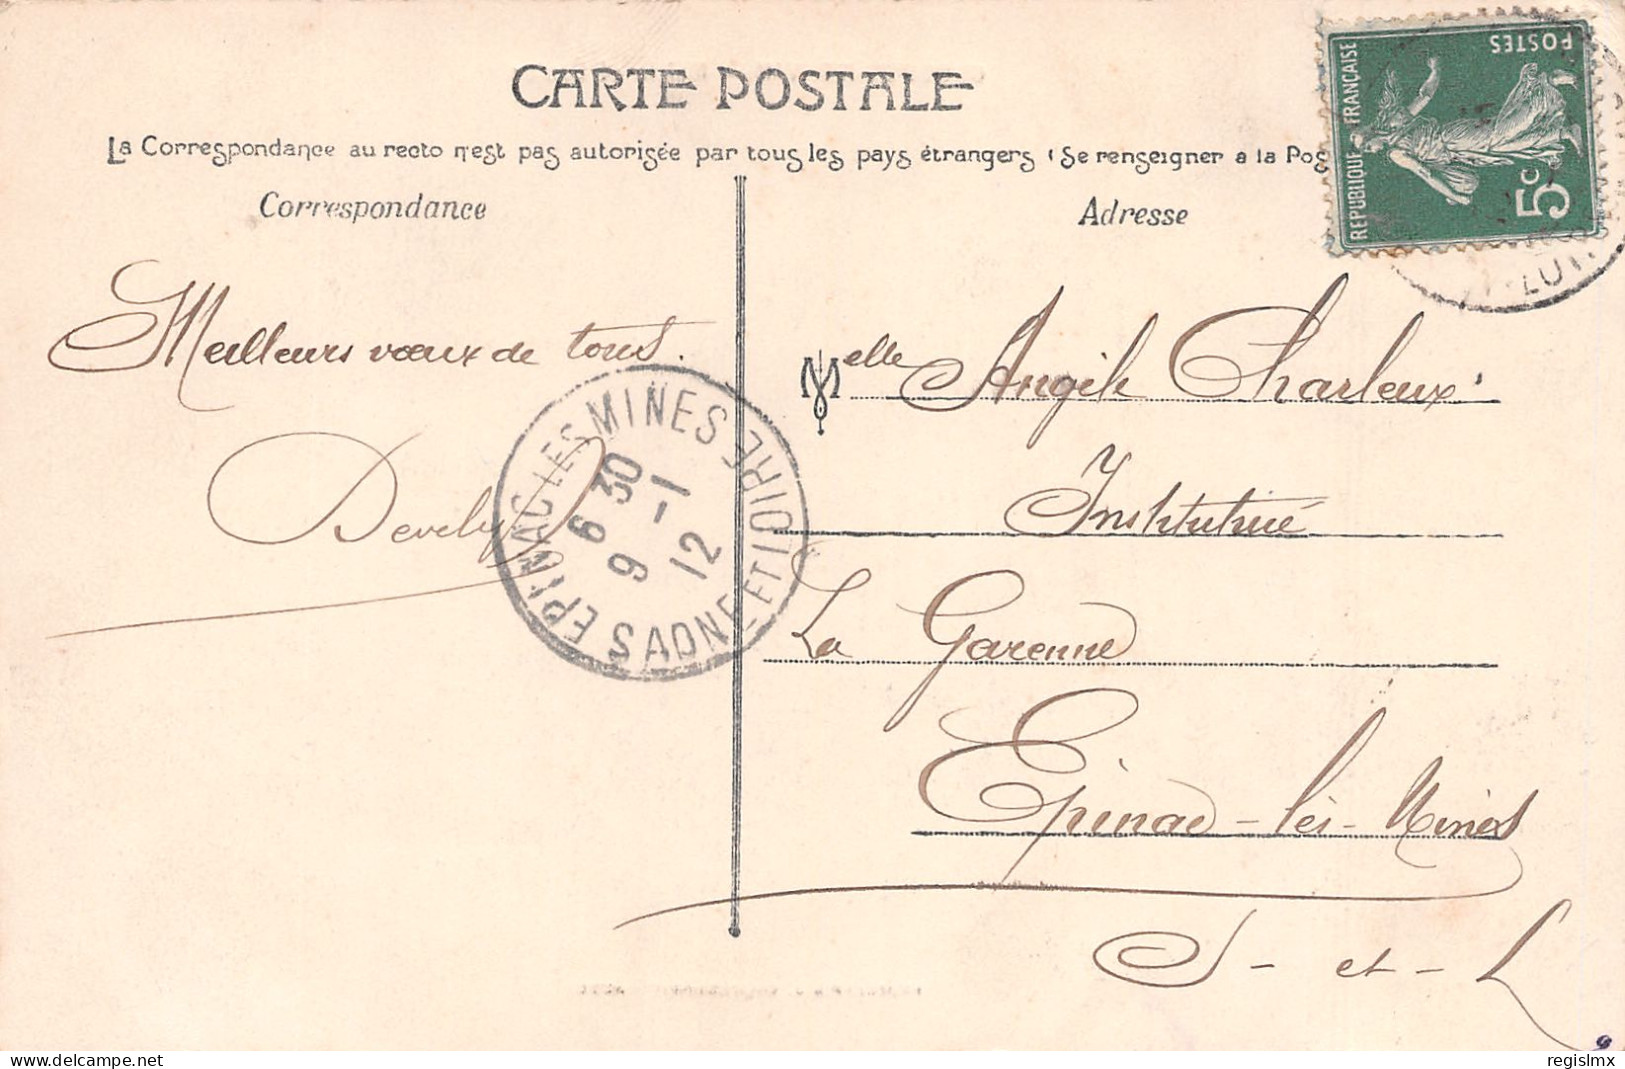 CARTE POSTALE
La Correspondance au recto n'est pas autorisée par tous les pays étrangers (Se renseigner a la Pos
Correspondance
Adresse
REPUBLIQUE FRANÇAISE
POSTES
5c
Meilleurs vœux de tous.
Develey
EPINAC LES MINES SAONE ET LOIRE
6 30
9 -1
12
Melle Angèle Charleux
Institutrice
La Garenne
Epinac-lès-Mines
S-et-L
regislmx